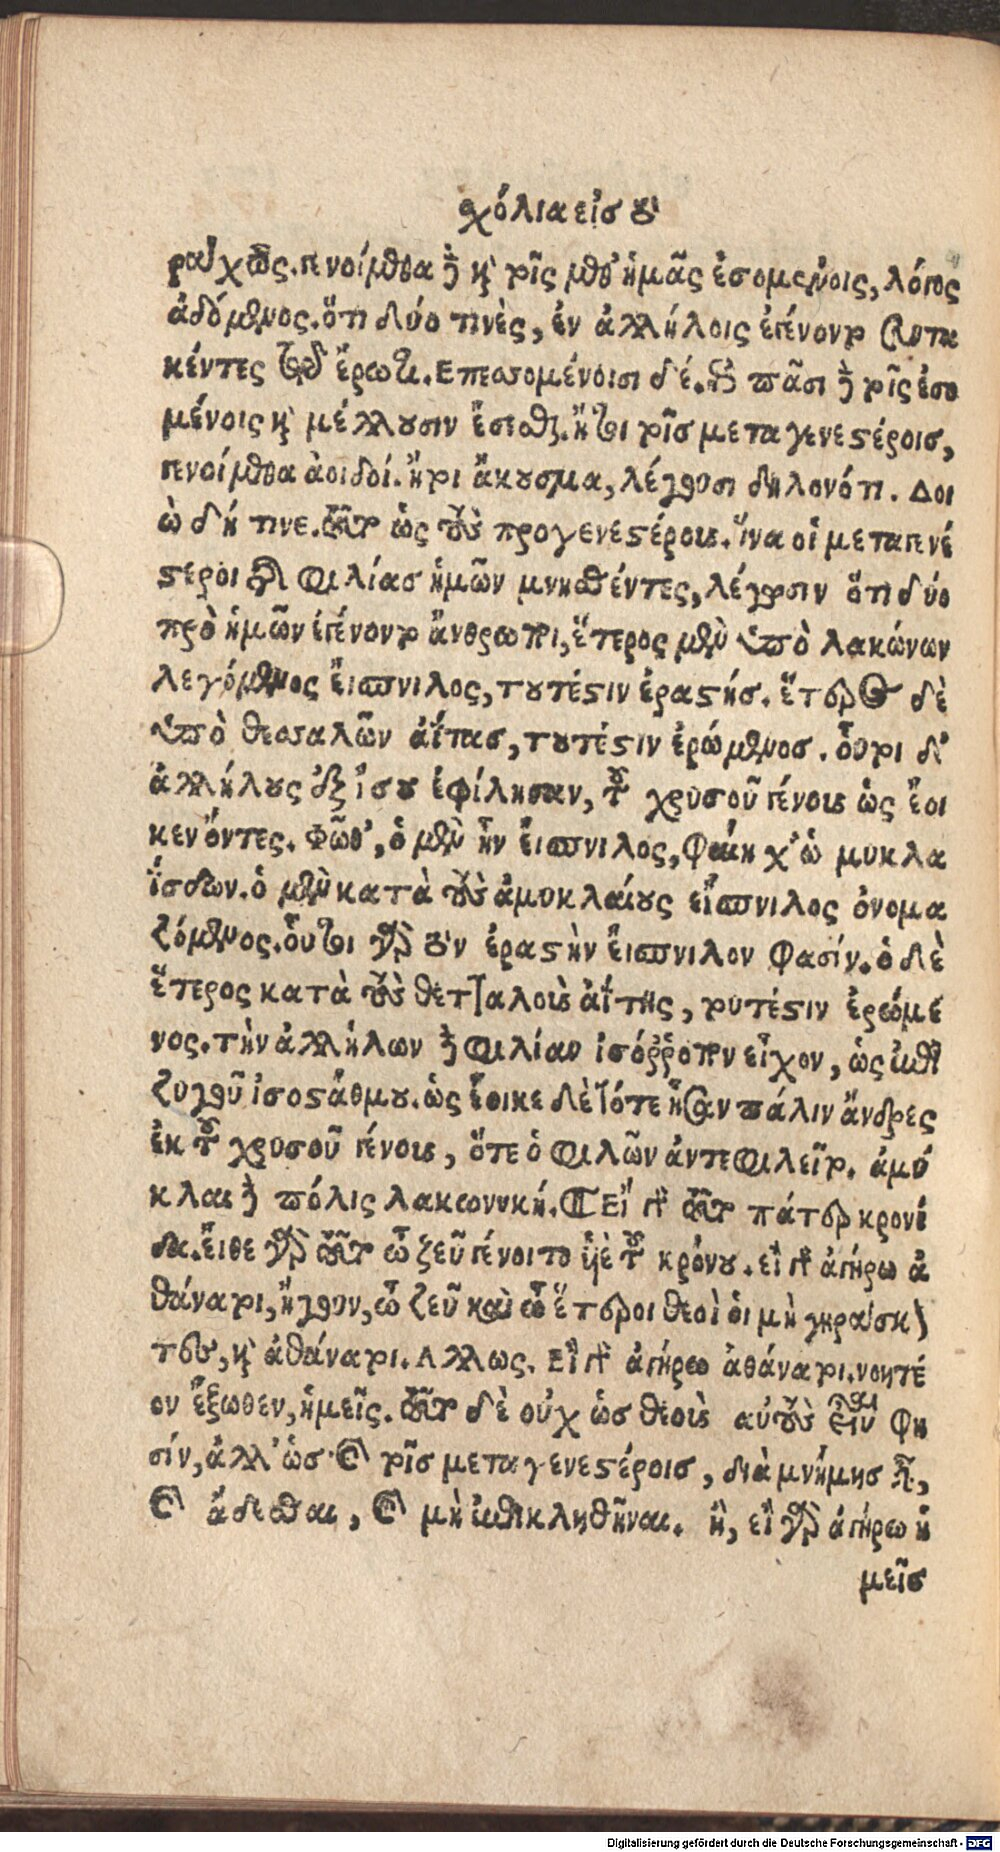 σχόλια εἰς τοῦ
γενοίμεθα δὲ καὶ τοῖς μεθ' ἡμᾶς ἐσομένοις, λόγος
ἀδόμενος. ὅτι δύο τινὲς, ἐν ἀλλήλοις ἐγένοντο
κέντες ἔρωτι. Επεσσομένοισι δέ. πᾶσι δὲ τοῖς ἐσο
μένοις καὶ μέλλουσιν ἔσεσθαι. ἤτοι τοῖς μεταγενεστέροις,
γενοίμεθα ἀοιδοί. ἤτοι ἄκουσμα, λέγουσι δηλονότι. Δοι
ὼ δή τινε. τοῦτο ὡς τοὺς προγενεστέρους. ἵνα οἱ μεταγενέ
στεροι τῆς φιλίας ἡμῶν μνησθέντες, λέγωσιν ὅτι δύο
πρὸ ἡμῶν ἐγένοντο ἄνθρωποι, ἕτερος μὲν ὑπὸ λακώνων
λεγόμενος εἴσπνιλος, τουτέστιν ἐραστής. ἕτερος δὲ
ὑπὸ θεσσαλῶν ἀΐτας, τουτέστιν ἐρώμενος. οὗτοι δ'
ἀλλήλους ἐξ ἴσου ἐφίλησαν, τοῦ χρυσοῦ γένους ὡς ἔοι
κεν ὄντες. Φῶθ', ὁ μὲν ἦν εἴσπνιλος, φαίη χ' ὡ μυκλα
ΐσδων. ὁ μὲν κατὰ τοὺς ἀμυκλαίους εἴσπνιλος ὀνομα
ζόμενος. οὗτοι γὰρ τὸν ἐραστὴν εἴσπνιλον φασίν. ὁ δὲ
ἕτερος κατὰ τοὺς θετταλοὺς ἀΐτης, τουτέστιν ἐρώμε
νος. τὴν ἀλλήλων δὲ φιλίαν ἰσόρροπον εἶχον, ὡς ἐπὶ
ζυγοῦ ἰσοστάθμου. ὡς ἔοικε δὲ τότε ἦσαν πάλιν ἄνδρες
ἐκ τοῦ χρυσοῦ γένους, ὅτε ὁ φιλῶν ἀντεφιλεῖτο. ἀμύ
κλαι δὲ πόλις λακωνική. Εἲ γὰρ τοῦτο πάτερ κρονί
δα. εἴθε γὰρ τοῦτο ὦ ζεῦ γένοιτο υἱὲ τοῦ κρόνου. εἲ γὰρ ἀγήρω ἀ
θάνατοι, ἤγουν, ὦ ζεῦ καὶ ὦ ἕτεροι θεοὶ οἱ μὴ γηράσκον
τες, καὶ ἀθάνατοι. Αλλως. Εἲ γὰρ ἀγήρω ἀθάνατοι. νοητέ
ον ἔξωθεν, ἡμεῖς. τοῦτο δὲ οὐχ ὡς θεοὺς αὐτοὺς εἶναι φη
σίν, ἀλλ' ὡς ἐν τοῖς μεταγενεστέροις, διὰ μνήμης
ᾄδεσθαι, μὴ ἐπικληθῆναι. ἢ, εἲ γὰρ ἀγήρω ἡ
μεῖς